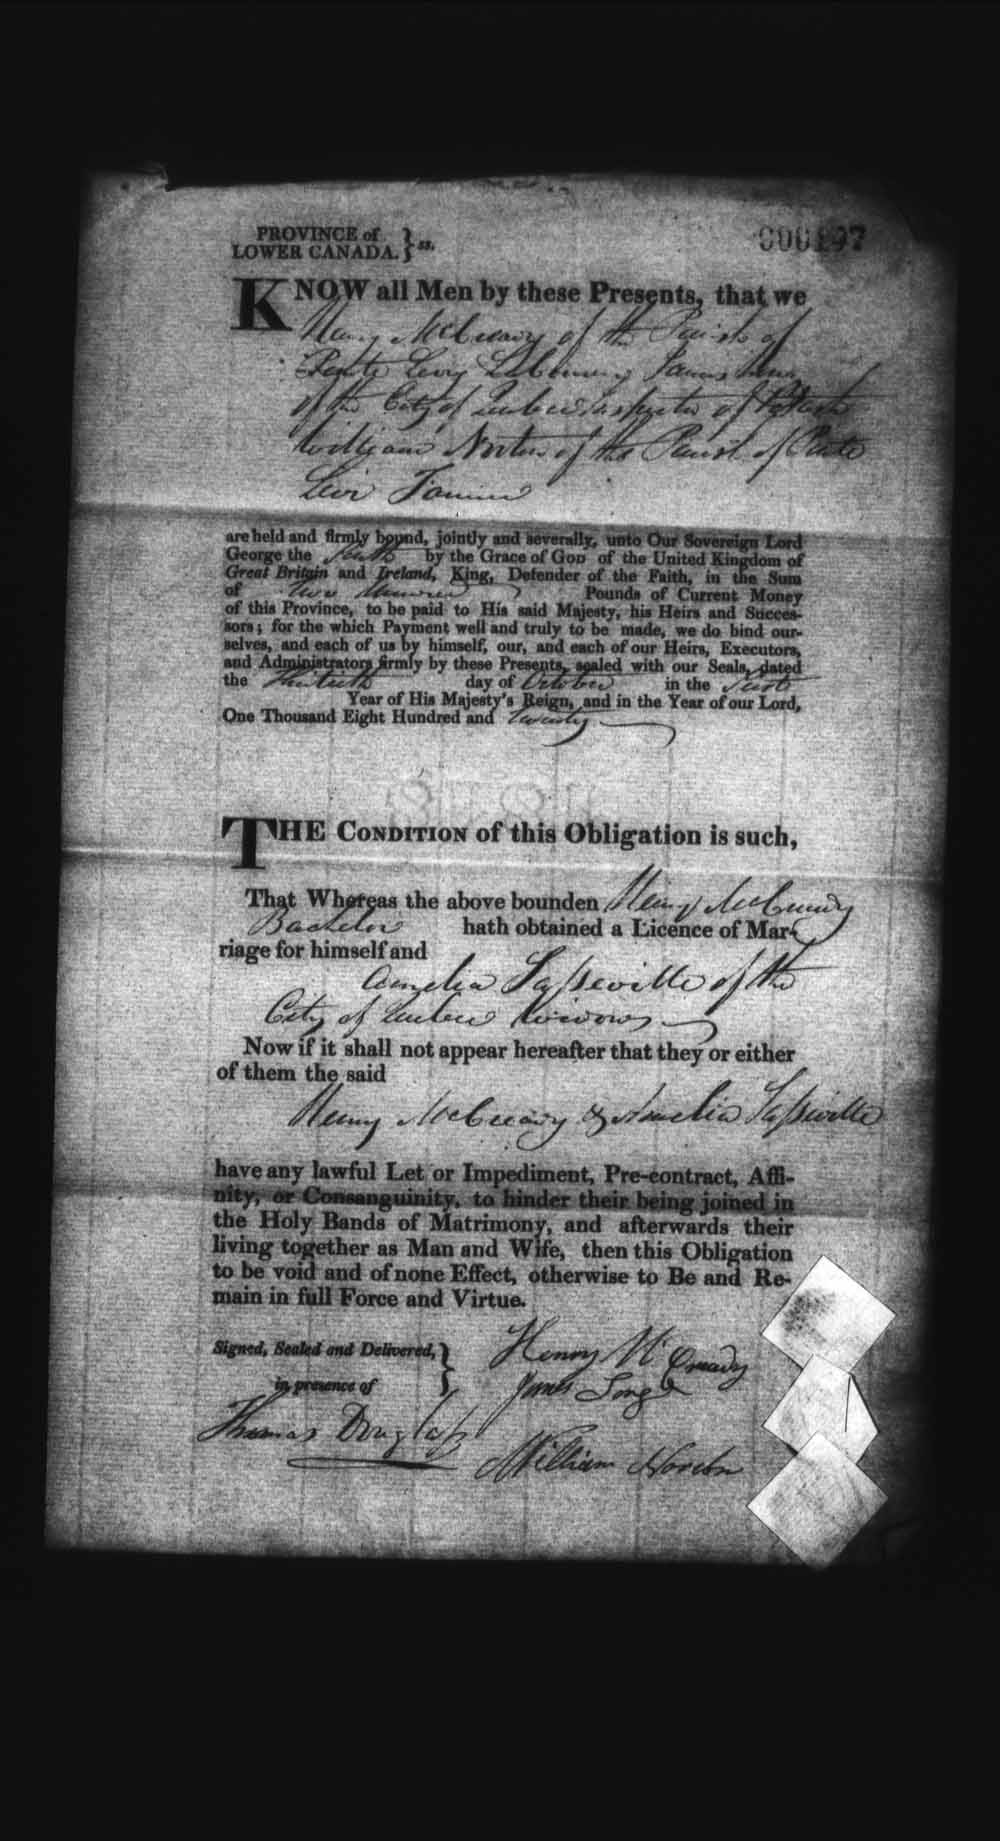 PROVINCE of
LOWER CANADA. } ss.
000197
KNOW all Men by these Presents, that we
Henry McCready of the Parish of
Pointe Levy Labourer, James Long
of the City of Quebec Inspector of Potash
William Norton of the Parish of Pointe
Levi
are held and firmly bound, jointly and severally, unto Our Sovereign Lord
George the fourth by the Grace of GOD of the United Kingdom of
Great Britain and Ireland, King, Defender of the Faith, in the Sum
of two hundred Pounds of Current Money
of this Province, to be paid to His said Majesty, his Heirs and Succes-
sors; for the which Payment well and truly to be made, we do bind our-
selves, and each of us by himself, our, and each of our Heirs, Executors,
and Administrators firmly by these Presents, sealed with our Seals, dated
the thirtieth day of October in the first
Year of His Majesty's Reign, and in the Year of our Lord,
One Thousand Eight Hundred and twenty
THE CONDITION of this Obligation is such,
That Whereas the above bounden Henry McCready
Bachelor hath obtained a Licence of Mar-
riage for himself and
Amelia Lasseville of the
City of Quebec Widow
Now if it shall not appear hereafter that they or either
of them the said
Henry McCready & Amelia Lasseville
have any lawful Let or Impediment, Pre-contract, Affi-
nity, or Consanguinity, to hinder their being joined in
the Holy Bands of Matrimony, and afterwards their
living together as Man and Wife, then this Obligation
to be void and of none Effect, otherwise to Be and Re-
main in full Force and Virtue.
Signed, Sealed and Delivered,
in presence of }
Henry McCready
James Long
Thomas Douglass
William Norton